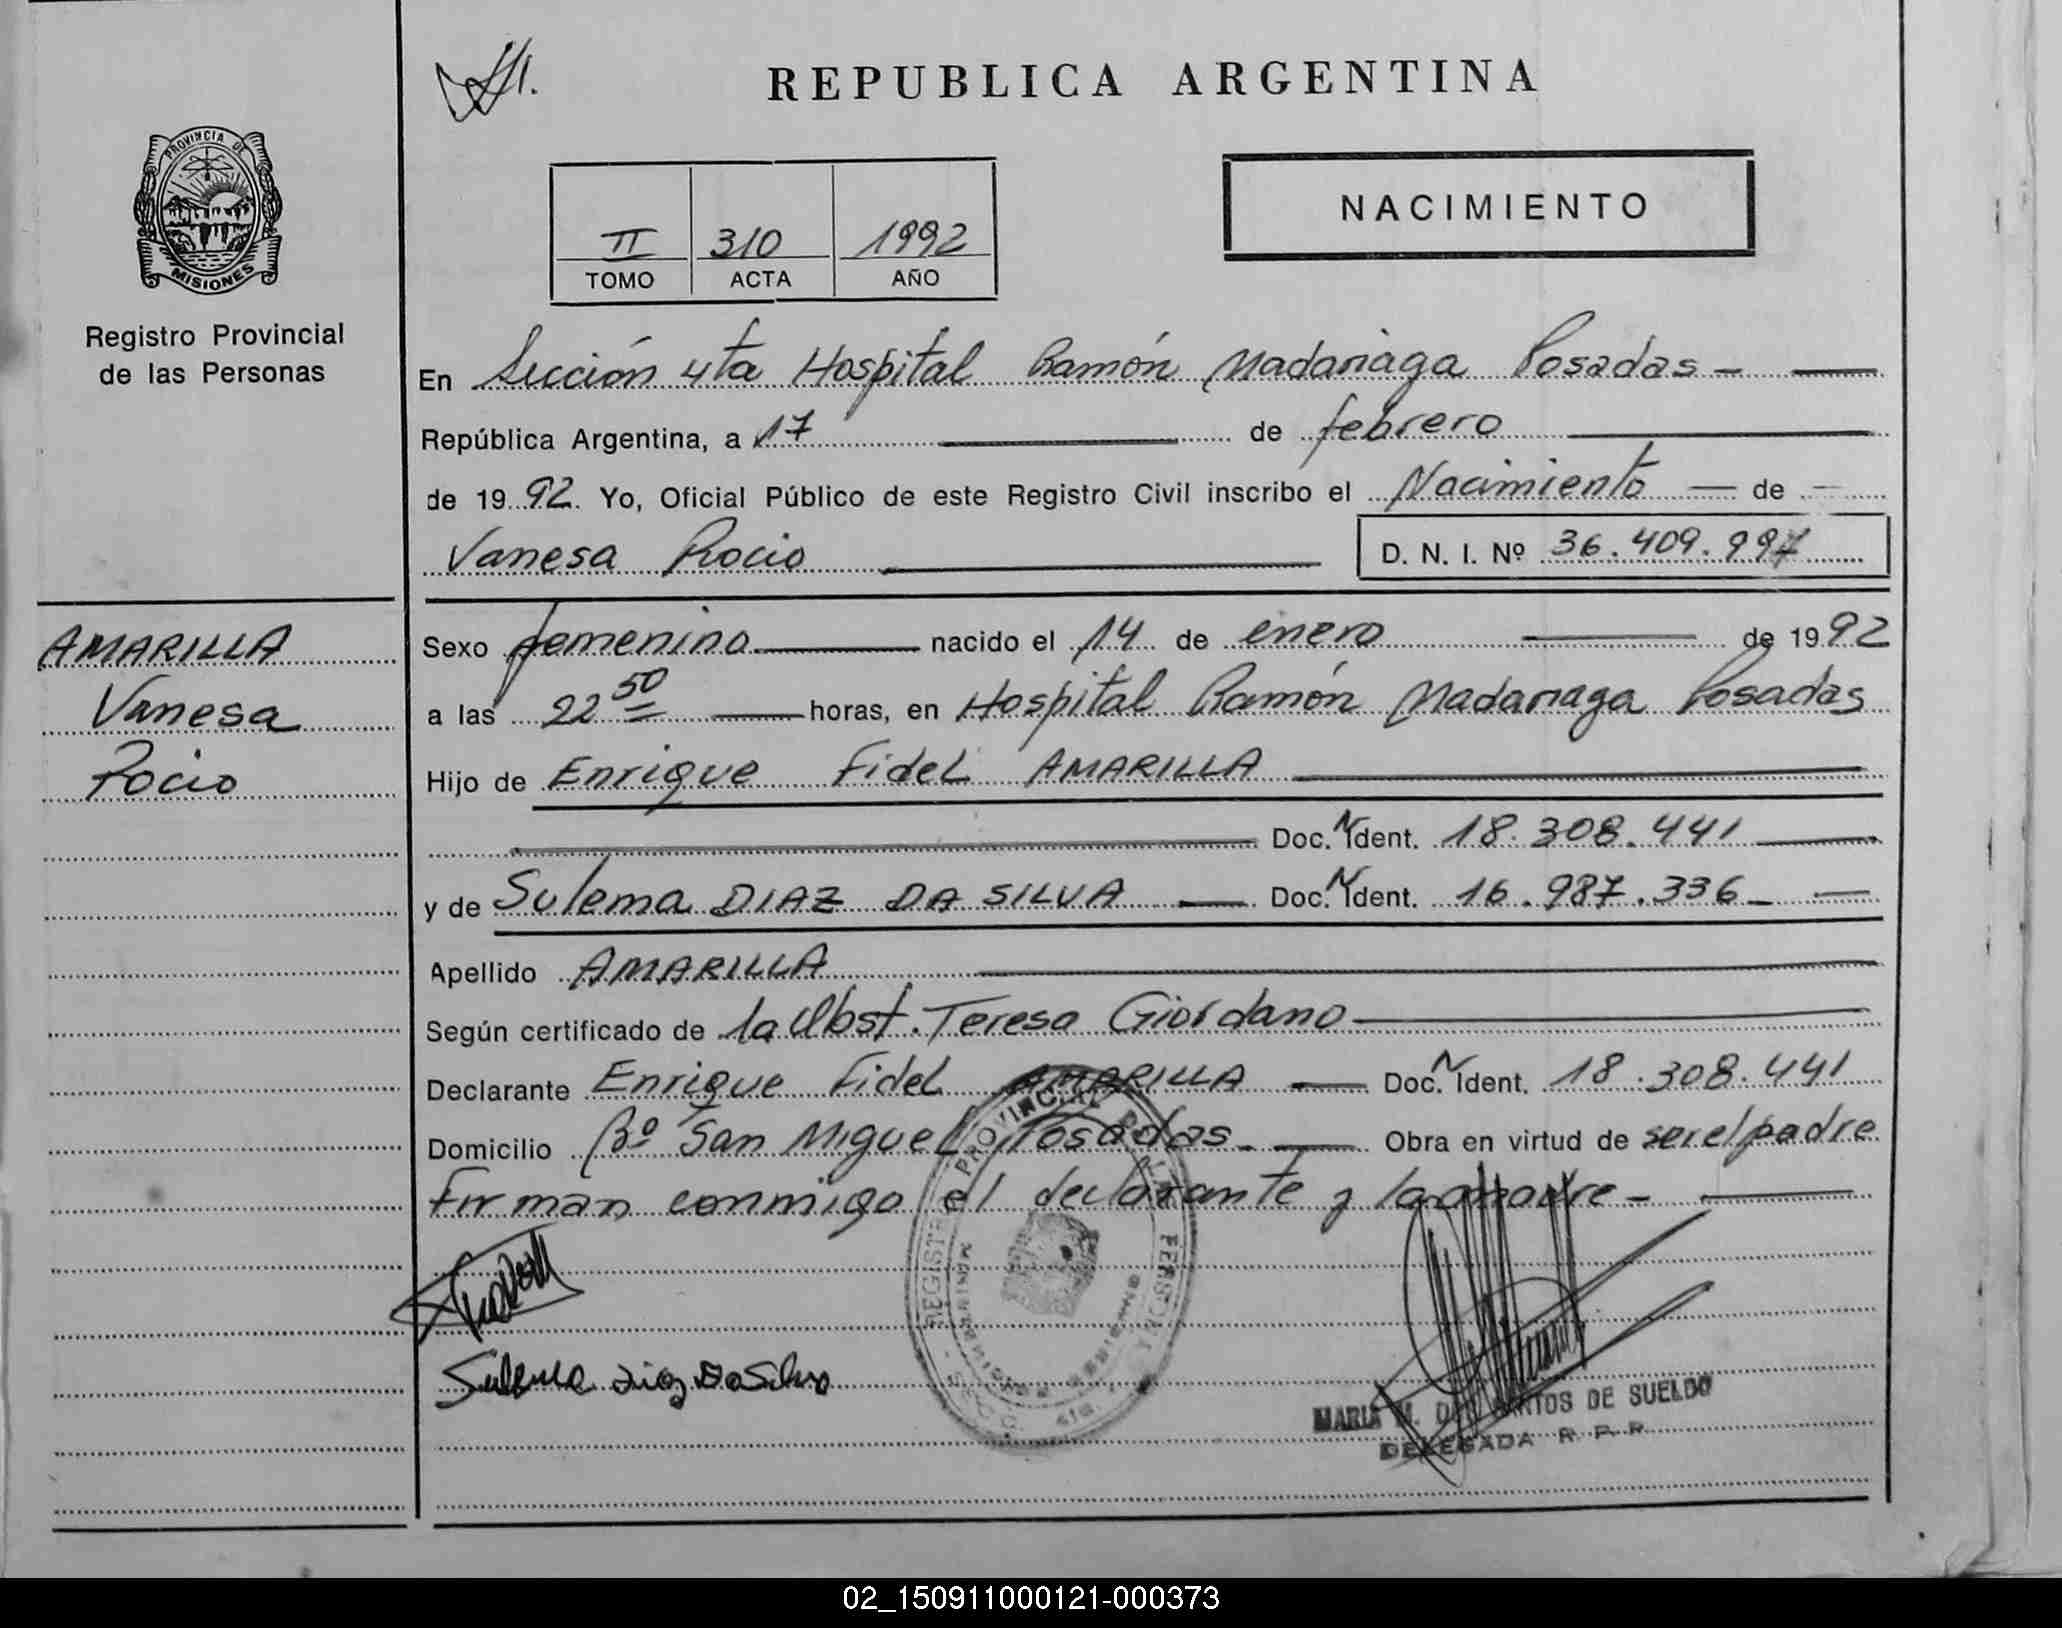 REPUBLICA ARGENTINA
PROVINCIA DE
MISIONES
Registro Provincial
de las Personas
II 310 1992
TOMO ACTA AÑO
NACIMIENTO
En Sección 4ta Hospital Ramón Madariaga Posadas
República Argentina, a 17 de febrero
de 1992. Yo, Oficial Público de este Registro Civil inscribo el Nacimiento de
Vanesa Rocio D. N. I. Nº 36.409.997
AMARILLA
Vanesa
Rocio
Sexo femenino nacido el 14 de enero de 1992
a las 22 50 horas, en Hospital Ramón Madariaga Posadas
Hijo de Enrique Fidel AMARILLA
Doc. N Ident. 18.308.441
y de Sulema DIAZ DA SILVA Doc. N Ident. 16.987.336
Apellido AMARILLA
Según certificado de la Obst. Teresa Giordano
Declarante Enrique Fidel AMARILLA Doc. N Ident. 18.308.441
Domicilio Bº San Miguel Posadas Obra en virtud de ser el padre
Firman conmigo el declarante y la madre
Sulema Diaz Da Silva
MARIA M. DOS SANTOS DE SUELDO
DELEGADA R. P. P.
02_150911000121-000373